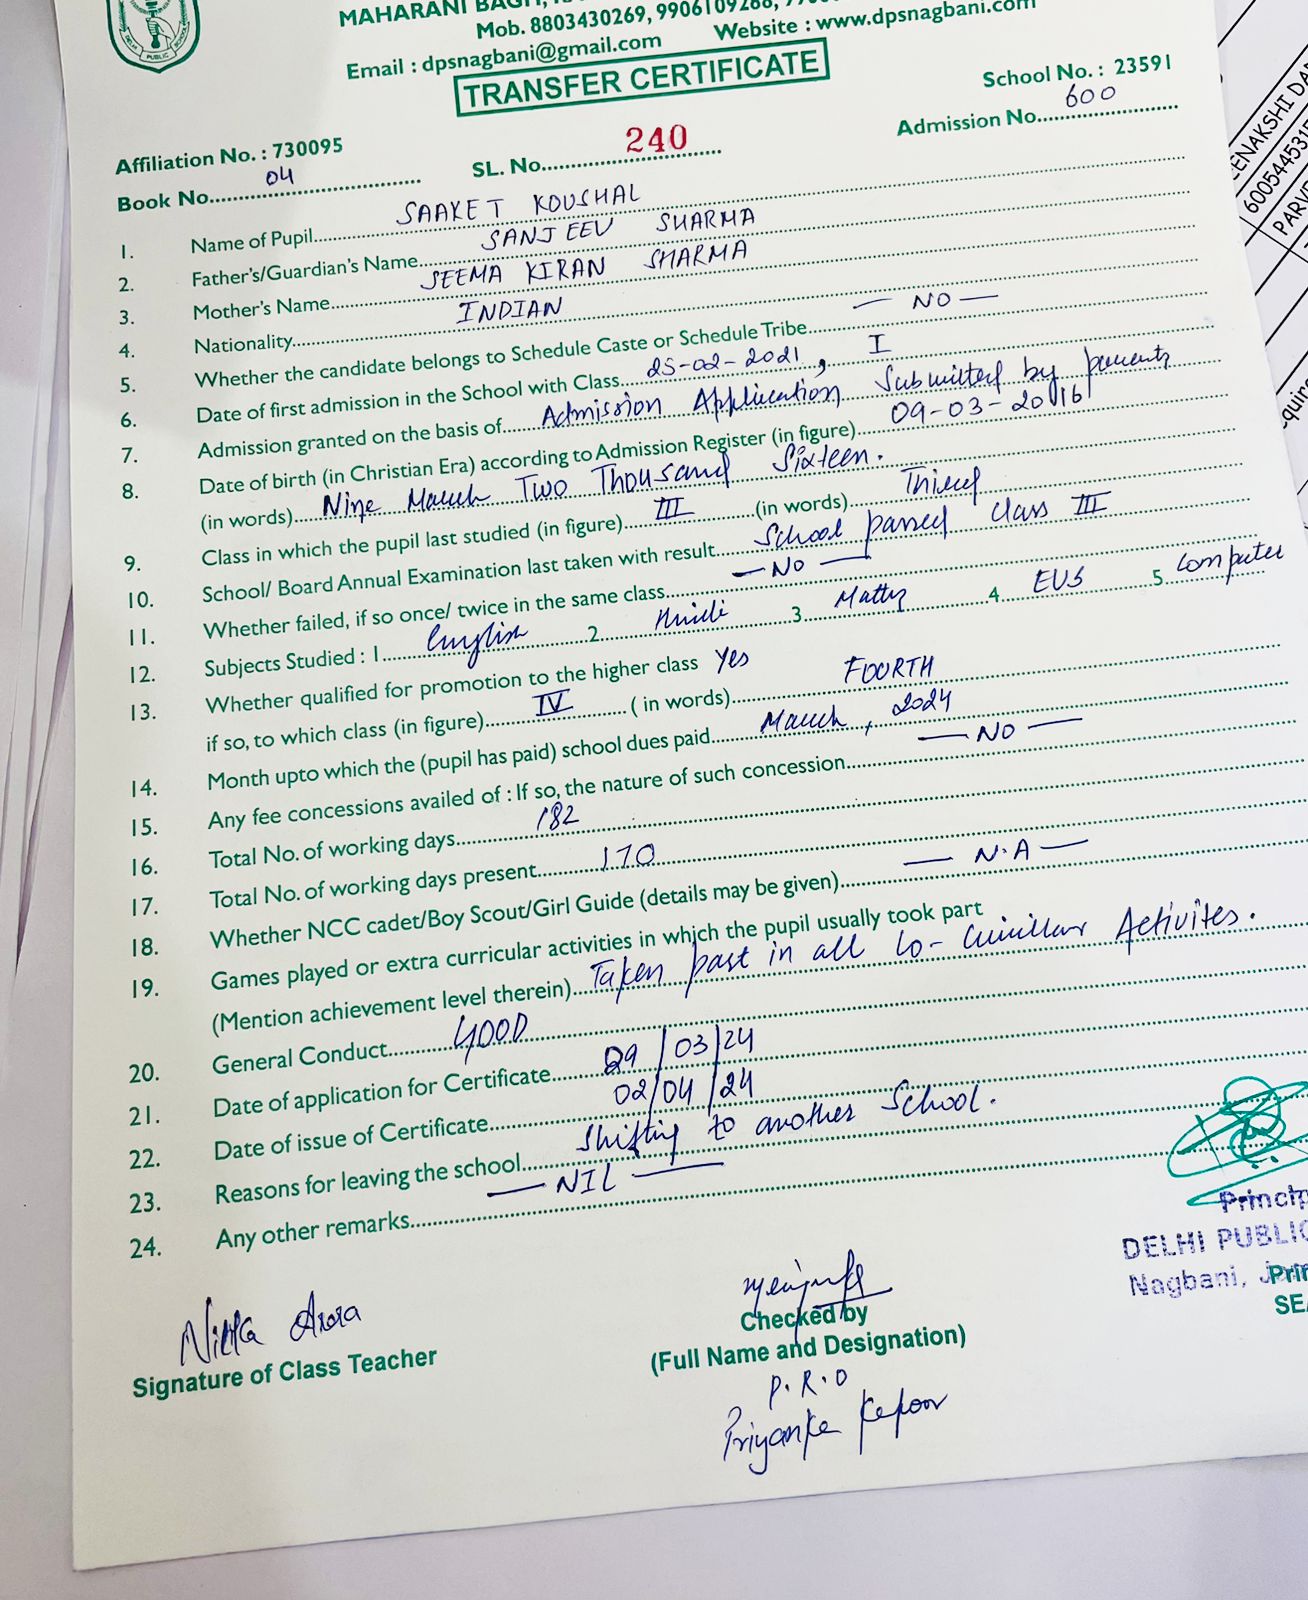 DELHI PUBLIC SCHOOL
MAHARANI BAGH,
Mob. 8803430269, 9906109288,
Email : dpsnagbani@gmail.com Website : www.dpsnagbani.com
TRANSFER CERTIFICATE
School No. : 23591
Affiliation No. : 730095
Admission No. 600
Book No. 04 SL. No. 240
1. Name of Pupil SAAKET KOUSHAL
2. Father's/Guardian's Name SANJEEV SHARMA
3. Mother's Name SEEMA KIRAN SHARMA
4. Nationality INDIAN
5. Whether the candidate belongs to Schedule Caste or Schedule Tribe — NO —
6. Date of first admission in the School with Class 25-02-2021, I
7. Admission granted on the basis of Admission Application Submitted by parents
8. Date of birth (in Christian Era) according to Admission Register (in figure) 09-03-2016
(in words) Nine March Two Thousand Sixteen.
9. Class in which the pupil last studied (in figure) III (in words) Third
10. School/ Board Annual Examination last taken with result School passed class III
11. Whether failed, if so once/ twice in the same class — No —
12. Subjects Studied : 1 English 2. Hindi 3. Maths 4. EVS 5. Computer
13. Whether qualified for promotion to the higher class Yes
if so, to which class (in figure) IV ( in words) FOURTH
14. Month upto which the (pupil has paid) school dues paid March, 2024
15. Any fee concessions availed of : If so, the nature of such concession — NO —
16. Total No. of working days 182
17. Total No. of working days present 170
18. Whether NCC cadet/Boy Scout/Girl Guide (details may be given) — N.A —
19. Games played or extra curricular activities in which the pupil usually took part
(Mention achievement level therein) Taken part in all Co- Activites.
20. General Conduct GOOD
21. Date of application for Certificate 29/03/24
22. Date of issue of Certificate 02/04/24
23. Reasons for leaving the school Shifting to another School.
24. Any other remarks — NIL —
Princip
DELHI PUBLIC
Nagbani,
Prin
SEA
Nikita Arora
Signature of Class Teacher
Checked by
(Full Name and Designation)
P.R.O
Priyanka Kapoor
ENAKSHI DA
6005445315
PARV
quire